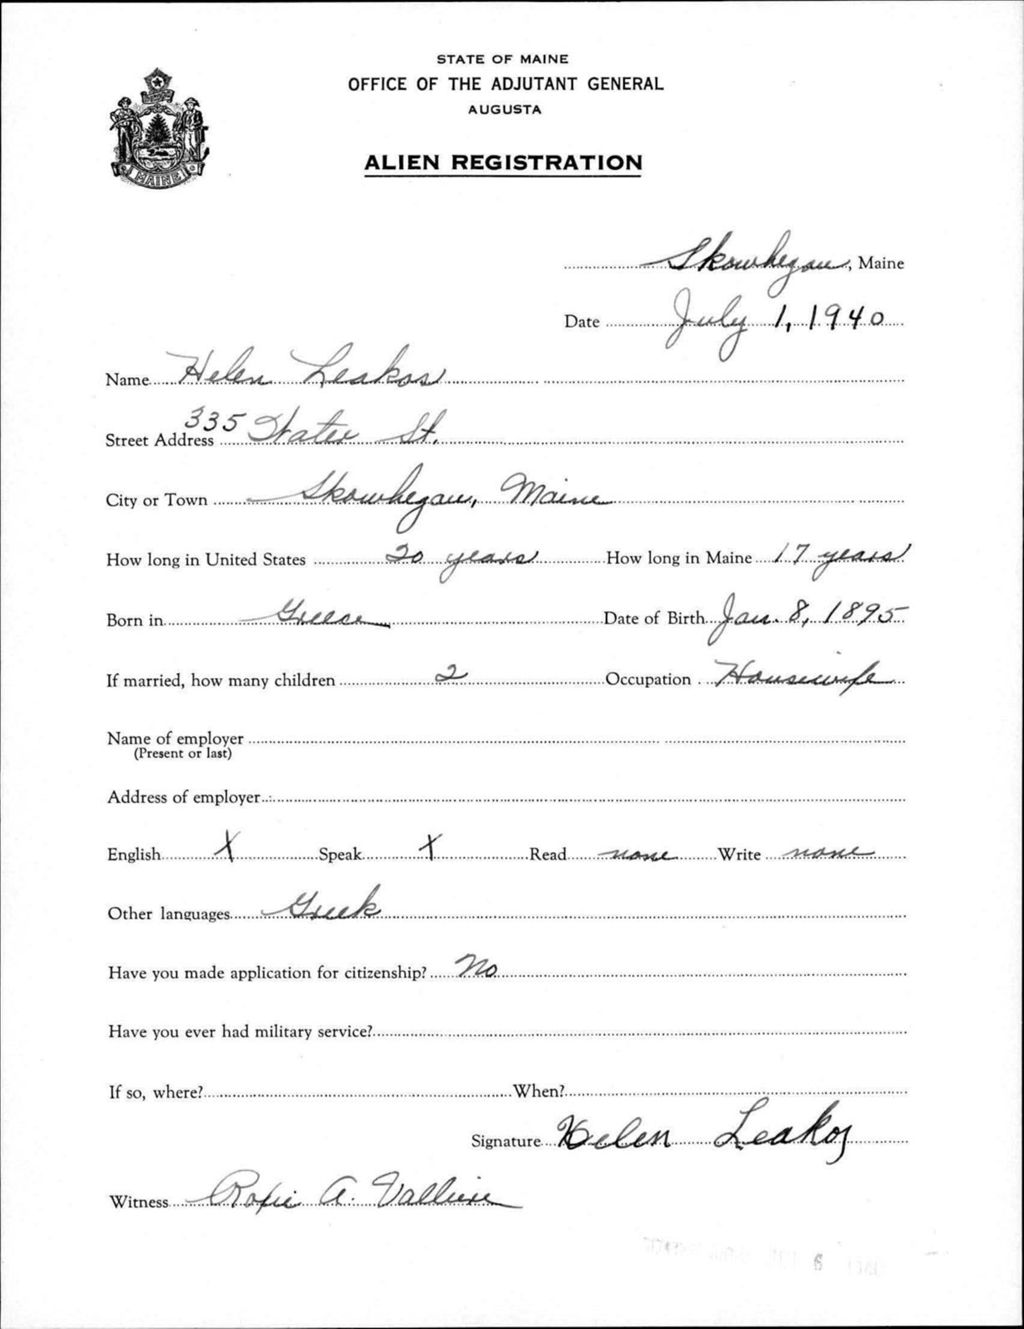 STATE OF MAINE
OFFICE OF THE ADJUTANT GENERAL
AUGUSTA
ALIEN REGISTRATION
MAINE
Skowhegan, Maine
Date July 1, 1940
Name Helen Leakos
Street Address 335 Water St.
City or Town Skowhegan, Maine
How long in United States 20 years How long in Maine 17 years
Born in Greece Date of Birth Jan. 8, 1895
If married, how many children 2 Occupation Housewife
Name of employer
(Present or last)
Address of employer
English X Speak X Read none Write none
Other languages Greek
Have you made application for citizenship? No
Have you ever had military service?
If so, where? When?
Signature Helen Leakos
Witness A. Valliere